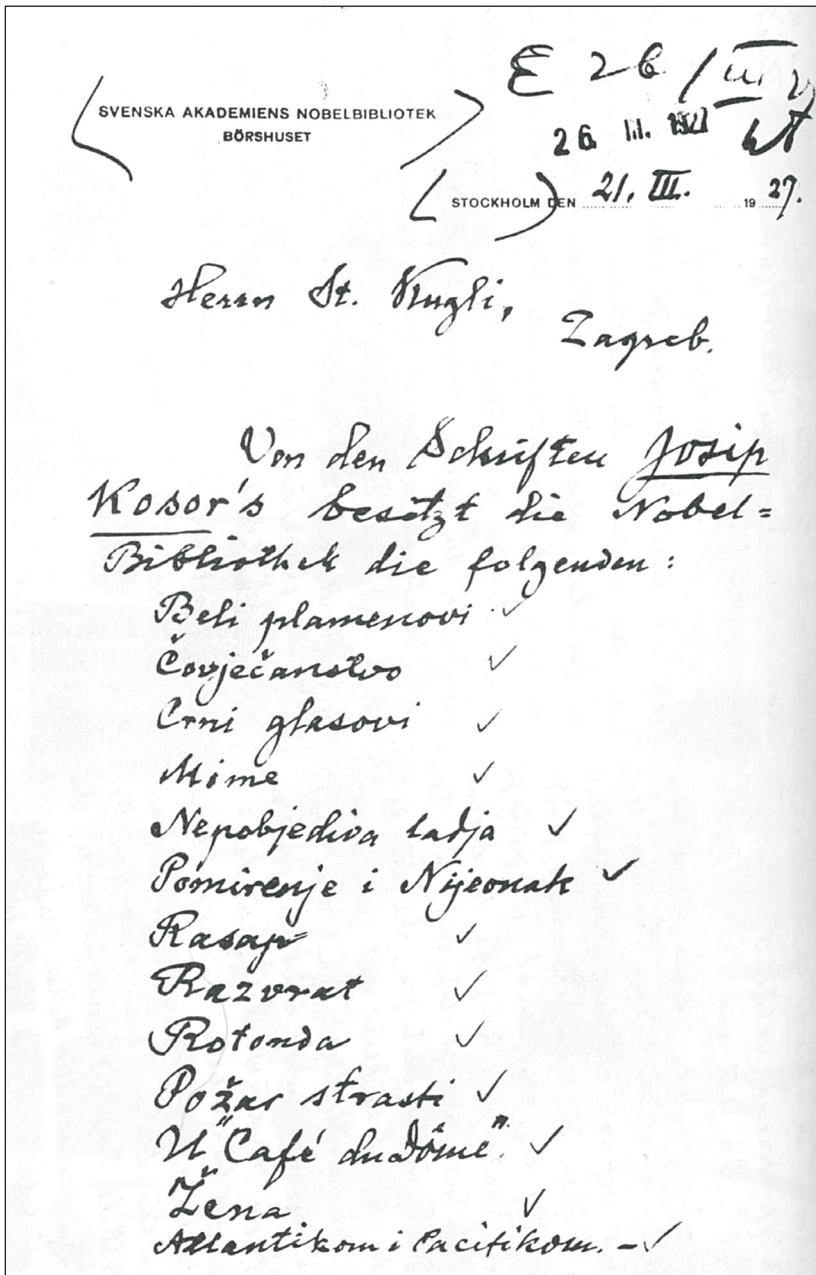 E 26/III 27
SVENSKA AKADEMIENS NOBELBIBLIOTEK
BÖRSHUSET
26. III. 1927
STOCKHOLM DEN 21. III. 1927.
Herrn St. Kugli,
Zagreb.
Von den Schriften Josip
Kosor's besitzt die Nobel=
Bibliothek die folgenden:
Beli plamenovi ✓
Čovječanstvo ✓
Crni glasovi ✓
Mime ✓
Nepobjediva ladja ✓
Pomirenje i Nijeonak ✓
Rasap ✓
Razvrat ✓
Rotonda ✓
Požar strasti ✓
U "Café du dôme". ✓
Žena ✓
Atlantikom i Pacifikom. - ✓